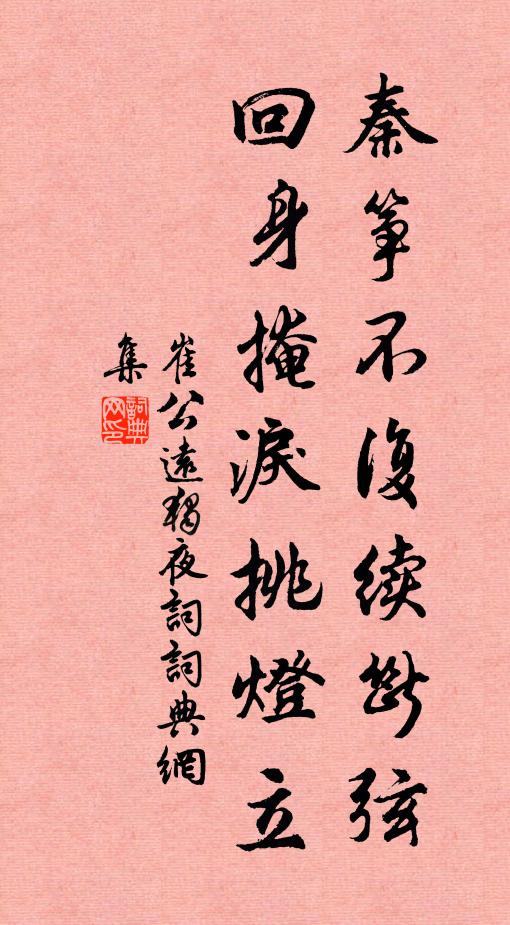 秦筝不復續斷弦
回身掩淚挑燈立
崔公遠獨夜詞詞典網
集
詞典
网印